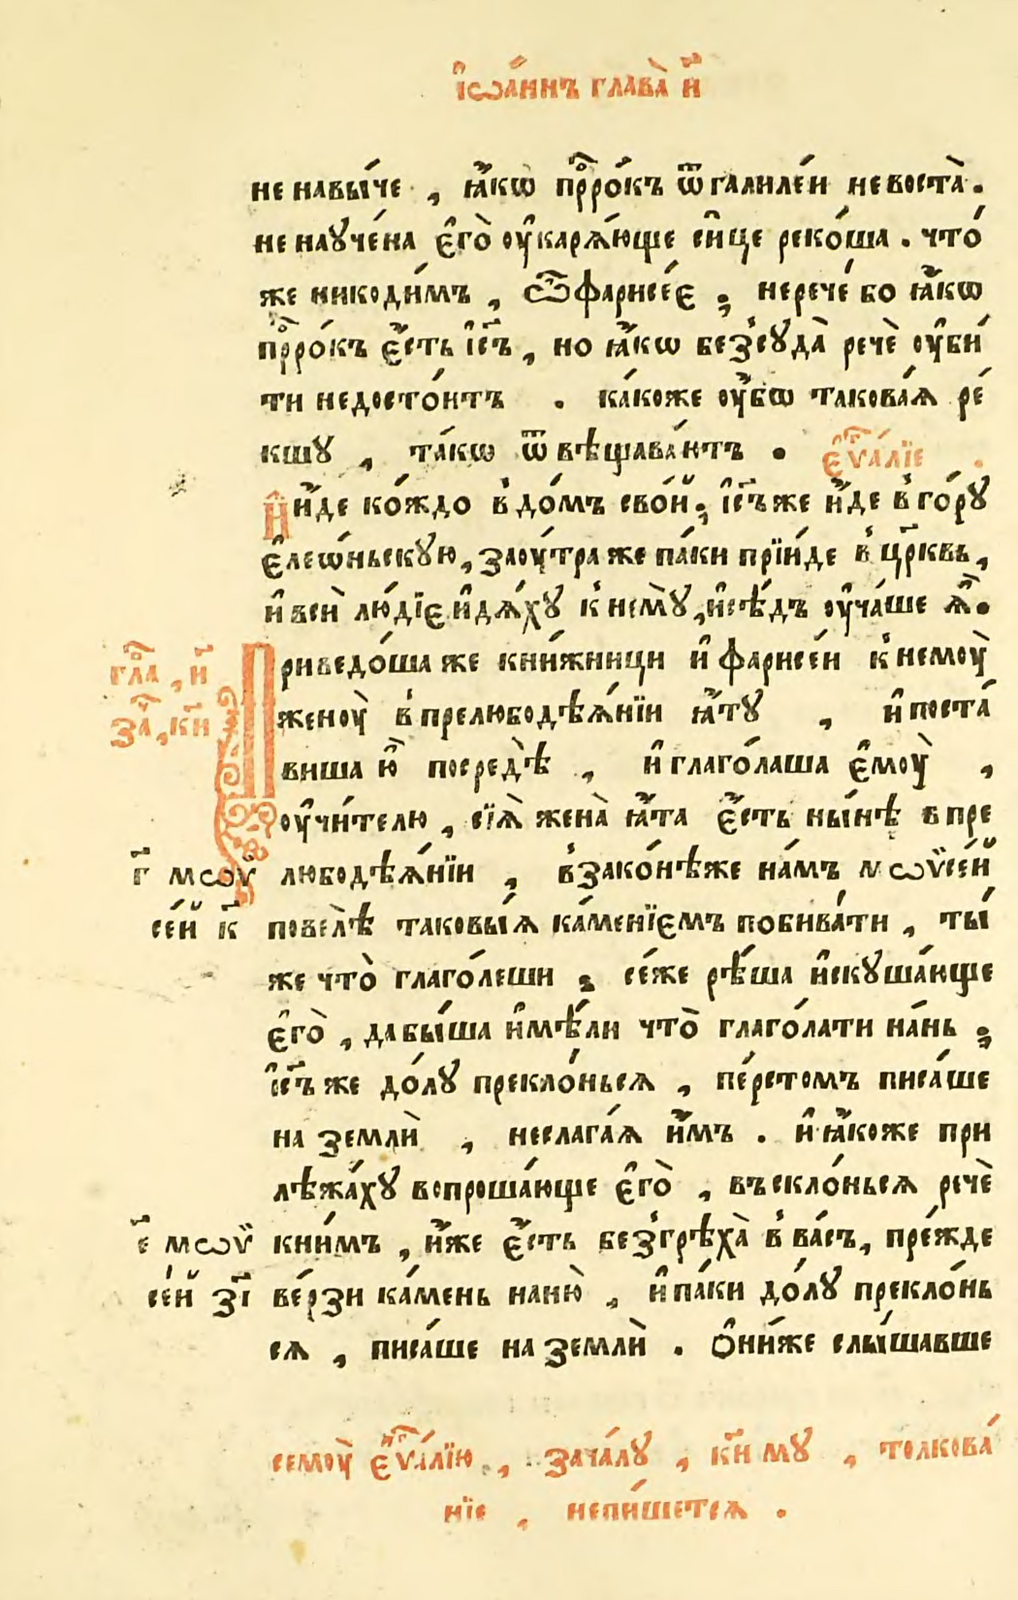 і҆ѡа́ннъ глава̀ и҃
не навы́че , ꙗ҆́кѡ прⷪ҇ро́къ ѿ галиле́и не воста̀ .
не науче́на є҆го̀ оу҆карѧ́юще си́це реко́ша . что́
же никоди́мъ , ѿ фарисе́є ; не рече́ бо ꙗ҆́кѡ
прⷪ҇ро́къ є҆́сть і҆с҃ъ , но ꙗ҆́кѡ без̾суда̀ речѐ оу҆би́
ти недосто́итъ . ка́коже оу҆́бѡ такова́ѧ ре́
кшу , та́кѡ ѿвѣщава́итъ . є҆ѵⷢ҇а́лїе .
И҆ и҆́де ко́ждо в̾ до́мъ сво́й ; і҆с҃ъ же и҆́де в̾ го́ру
є҆леѡ́ньскую , заоу́тра же па́ки прїи́де в̾ цр҃ковь ,
и҆ вси̑ лю́дїє и҆дѧ́ху к̾ нему̀ , и҆ сѣ́дъ оу҆ча́ше ѧ҆̀ .
Приведо́ша же кни́жници и҆ фарисе́и к̾ немоу̀
женоу̀ в̾ прелюбодѣѧ́нїи ꙗ҆́ту , и҆ поста́
виша ю҆̀ посредѣ̀ , и҆ глаго́лаша є҆моу̀ ,
оу҆чи́телю , сїѧ̀ жена̀ ꙗ҆́та є҆́сть ны́нѣ в пре
любодѣѧ́нїи , в̾зако́нѣже на́мъ мѡѷсе́й
повелѣ̀ таковы́ѧ ка́менїємъ побива́ти , ты́
же что̀ глаго́леши ; се́же рѣ́ша и҆скуша́юще
є҆го̀ , да бы́ша и҆мѣ́ли что̀ глаго́лати на́нь ;
і҆с҃ъ же до́лу прекло́ньсѧ , пе́рстомъ писа́ше
на землѝ , неслага́ѧ и҆̀мъ . и҆ ꙗ҆́коже при
лѣжа́ху вопроша́юще є҆го̀ , въскло́ньсѧ речѐ
кни́мъ , и҆́же є҆́сть без̾грѣха̀ в̾ ва́съ , пре́жде
ве́рзи ка́мень наню̀ , и҆ па́ки до́лу прекло́нь
сѧ , писа́ше на землѝ . Ѻ҆ни́же слы́шавше
гла̀ , и҃
за҇ , ки҃
г҃ мѡѷ
се́й к҃
є҃ мѡѷ
се́й з҃і
семоу̀ є҆ѵⷢ҇а́лїю , зача́лу , ки҃ му , толкова́
нїе , непи́шетсѧ .